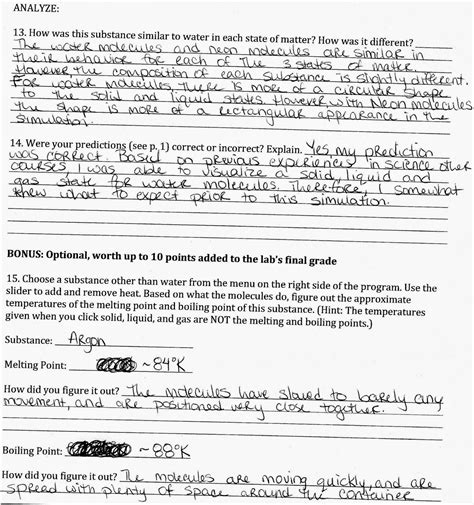 ANALYZE:
13. How was this substance similar to water in each state of matter? How was it different?
The water molecules and neon molecules are similar in
their behavior for each of the 3 states of matter.
However, the composition of each substance is slightly different.
For water molecules, there is more of a circular shape
to the solid and liquid states. However, with Neon molecules
the shape is more of a rectangular appearance in the
simulation.
14. Were your predictions (see p. 1) correct or incorrect? Explain. Yes, my prediction
was correct. Based on previous experiences in science other
courses I was able to visualize a solid, liquid and
gas state for water molecules. Therefore, I somewhat
knew what to expect prior to this simulation.
BONUS: Optional, worth up to 10 points added to the lab's final grade
15. Choose a substance other than water from the menu on the right side of the program. Use the
slider to add and remove heat. Based on what the molecules do, figure out the approximate
temperatures of the melting point and boiling point of this substance. (Hint: The temperatures
given when you click solid, liquid, and gas are NOT the melting and boiling points.)
Substance: Argon
Melting Point: ~84°K
How did you figure it out? The molecules have slowed to barely any
movement, and are positioned very close together.
Boiling Point: ~88°K
How did you figure it out? The molecules are moving quickly, and are
spread with plenty of space around the container